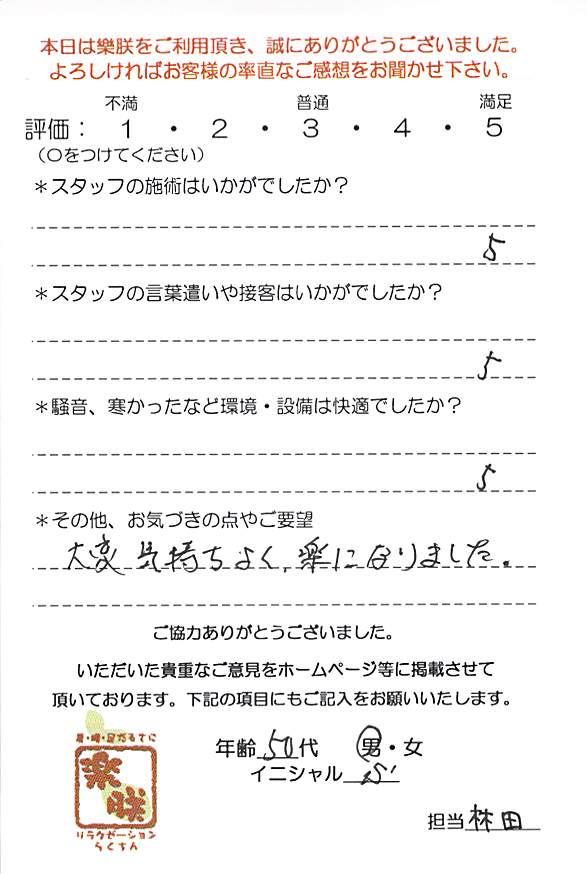 本日は樂朕をご利用頂き、誠にありがとうございました。
よろしければお客様の率直なご感想をお聞かせ下さい。
不満 普通 満足
評価： 1 ・ 2 ・ 3 ・ 4 ・ 5
（○をつけてください）
＊スタッフの施術はいかがでしたか？
5
＊スタッフの言葉遣いや接客はいかがでしたか？
5
＊騒音、寒かったなど環境・設備は快適でしたか？
5
＊その他、お気づきの点やご要望
大変気持ちよく、楽になりました。
ご協力ありがとうございました。
いただいた貴重なご意見をホームページ等に掲載させて
頂いております。下記の項目にもご記入をお願いいたします。
年齢 50代 男・女
イニシャル
担当 林田
樂朕
リラクゼーション
らくちん